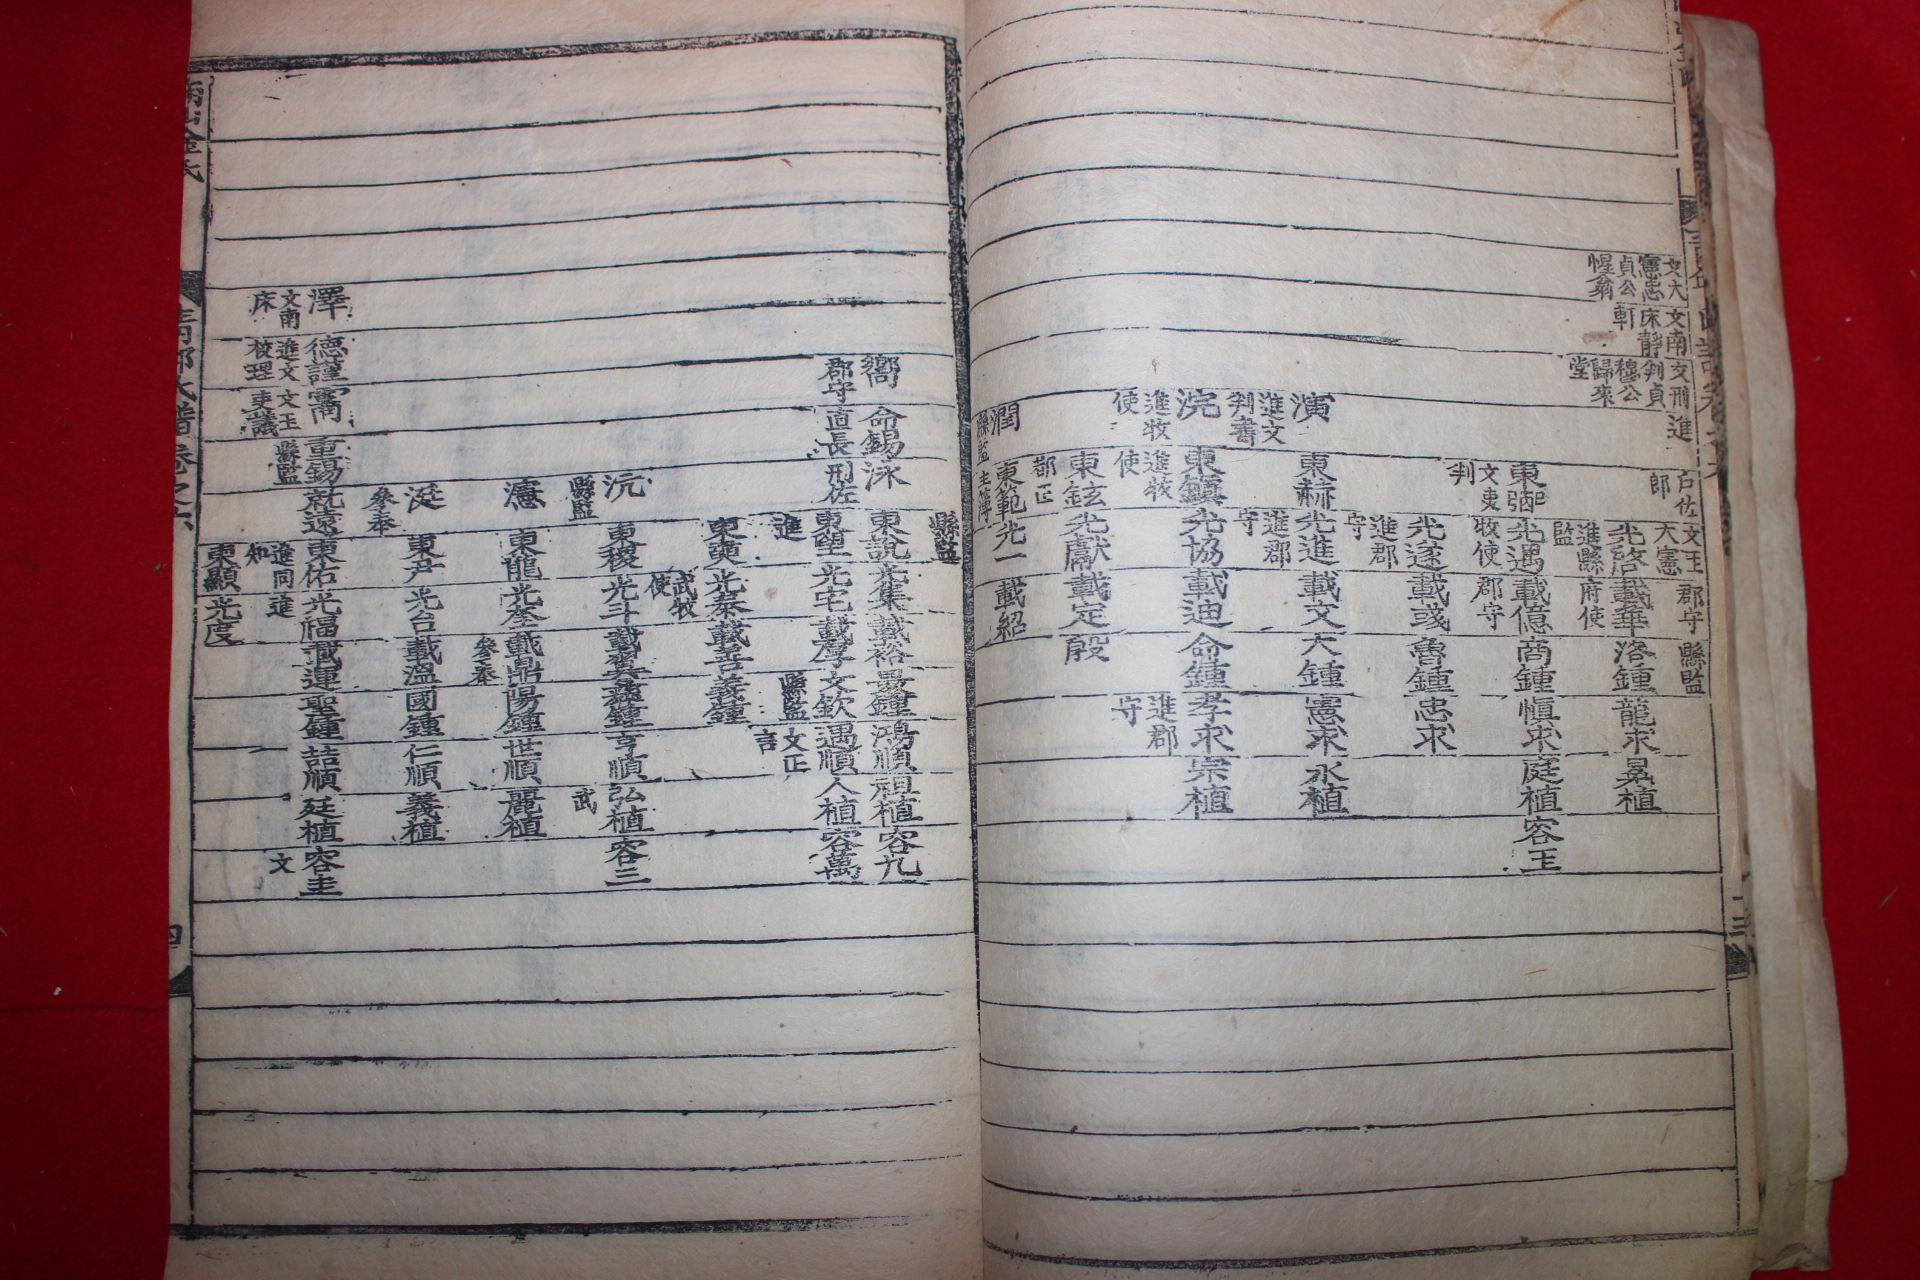 文大 文南 文刑 進
憲忠 床靜 判貞
貞公 軒 穆公
惺翁 歸來
堂
戶佐 文王 郡守 縣監
郎 大憲
光啓 載華 洛鍾 龍求 冕植
進縣 府使
監
東弼 光遇 載億 商鍾 愼求 庭植 容王
文吏 牧使 郡守
判
光遂 載彧 魯鍾 忠求
進郡
守
演 東赫 光進 載文 大鍾 憲求 永植
進文 進郡
判書 守
浣 東鎭 光協 載迪 命鍾 孝求 宗植
進牧 進牧 進郡
使 使 守
東鉉 光獻 載定 殷
都正
潤 東範 光一 載紹
縣監 主簿
縣監
嚮 命錫 泳 東說 光集 載裕 晏鍾 鴻順 祖植 容九
郡守 直長 刑佐 東望 光宅 載厚 文欽 遇順 人植 容萬
進 縣監 文正
言
東奭 光泰 載善 義鍾
武牧
使
沅 東稷 光斗 載異 鍾 亨順 弘植 容三
縣監 武
瀗 東龍 光奎 載鼎 陽鍾 世順 麗植
參奉
涎 東尹 光台 載溫 國鍾 仁順 義植
參奉
澤 德謹 重錫 就遠 東佑 光福 載運 聖鍾 喆順 廷植 容圭
文南 進文 文王 縣監 進同 進 文
床 校理 吏議 知
東顯 光度
金氏
靑郡氏譜卷之六
四